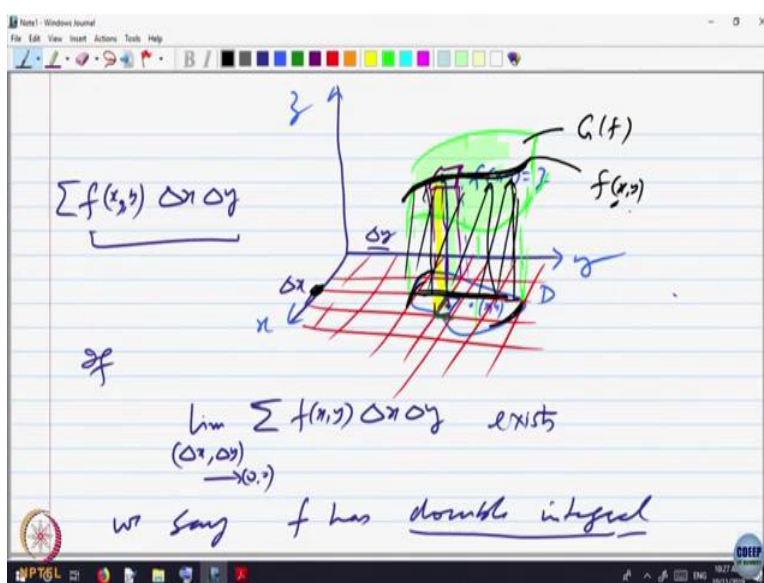 Note1 - Windows Journal
File Edit View Insert Actions Tools Help
B I
z
G(f)
f(x,y)
f(x,y)=z
∑ f(x,y) Δx Δy
Δy
y
Δx
D
(x,y)
x
If
lim ∑ f(x,y) Δx Δy exists
(Δx, Δy)
→(0,0)
we say f has double integral
NPTEL
CDEEP
ENG